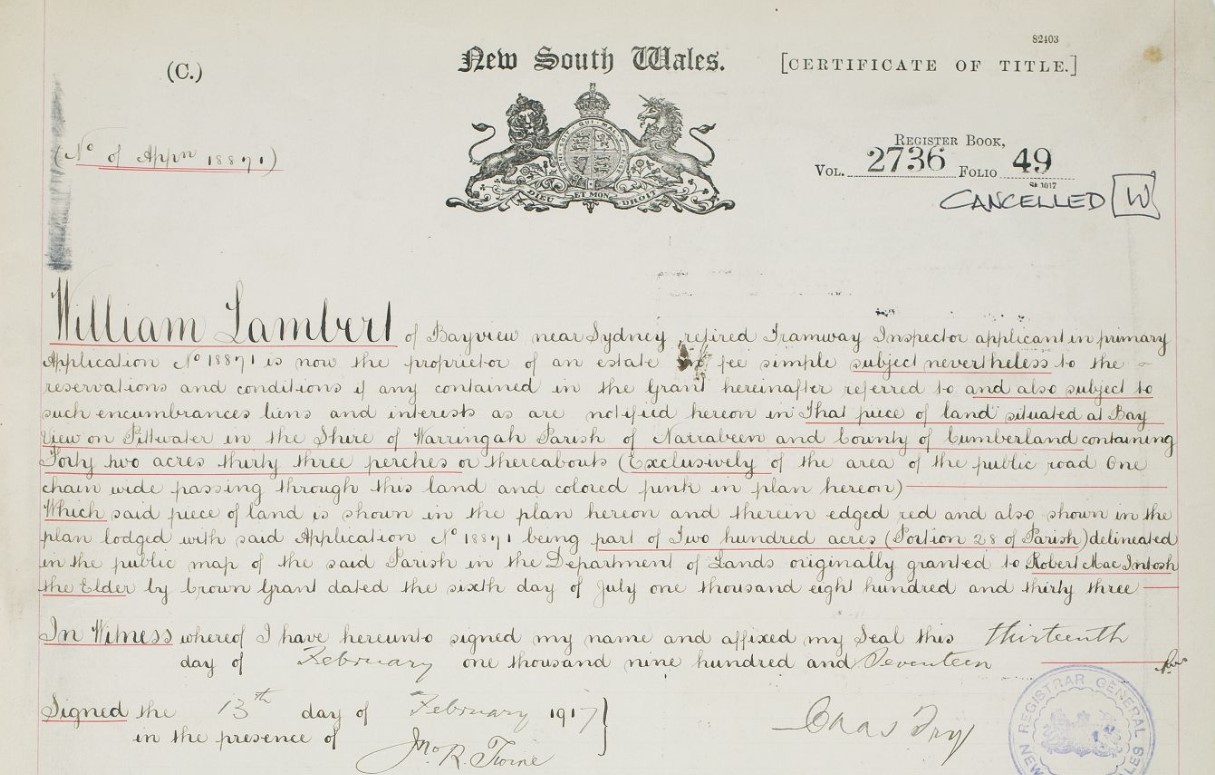 82403
(C.)
New South Wales.
[CERTIFICATE OF TITLE.]
(No of Appn 18871)
REGISTER BOOK,
VOL. 2736 FOLIO 49
CANCELLED W
DIEU ET MON DROIT
William Lambert of Bayview near Sydney retired Tramway Inspector applicant in primary
Application No 18871 is now the proprietor of an estate in fee simple subject nevertheless to the
reservations and conditions if any contained in the Grant hereinafter referred to and also subject to
such encumbrances liens and interests as are notified hereon in That piece of land situated at Bay
View on Pittwater in the Shire of Warringah Parish of Narrabeen and County of Cumberland containing
Forty two acres thirty three perches or thereabouts (Exclusively of the area of the public road One
chain wide passing through this land and colored pink in plan hereon)
Which said piece of land is shown in the plan hereon and therein edged red and also shown in the
plan lodged with said Application No 18871 being part of Two hundred acres (Portion 28 of Parish) delineated
in the public map of the said Parish in the Department of Lands originally granted to Robert Mac Intosh
the Elder by Crown Grant dated the sixth day of July one thousand eight hundred and thirty three
In Witness whereof I have hereunto signed my name and affixed my Seal this thirteenth
day of February one thousand nine hundred and Seventeen
Signed the 13th day of February 1917
in the presence of
Jno. R.
Chas
REGISTRAR GENERAL